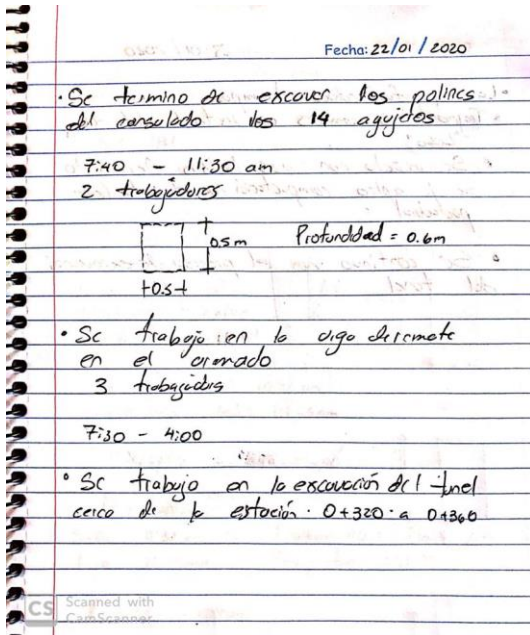 Fecha: 22/01/2020
• Se termino de excavar los polines
del consulado los 14 agujeros
7:40 - 11:30 am
2 trabajadores
0.5 m
Profundidad = 0.6m
0.5
• Se trabajo en la viga de remate
en el armado
3 trabajadores
7:30 - 4:00
• Se trabajo en la excavación del tunel
cerca de la estación 0+320 a 0+360
CS Scanned with
CamScanner